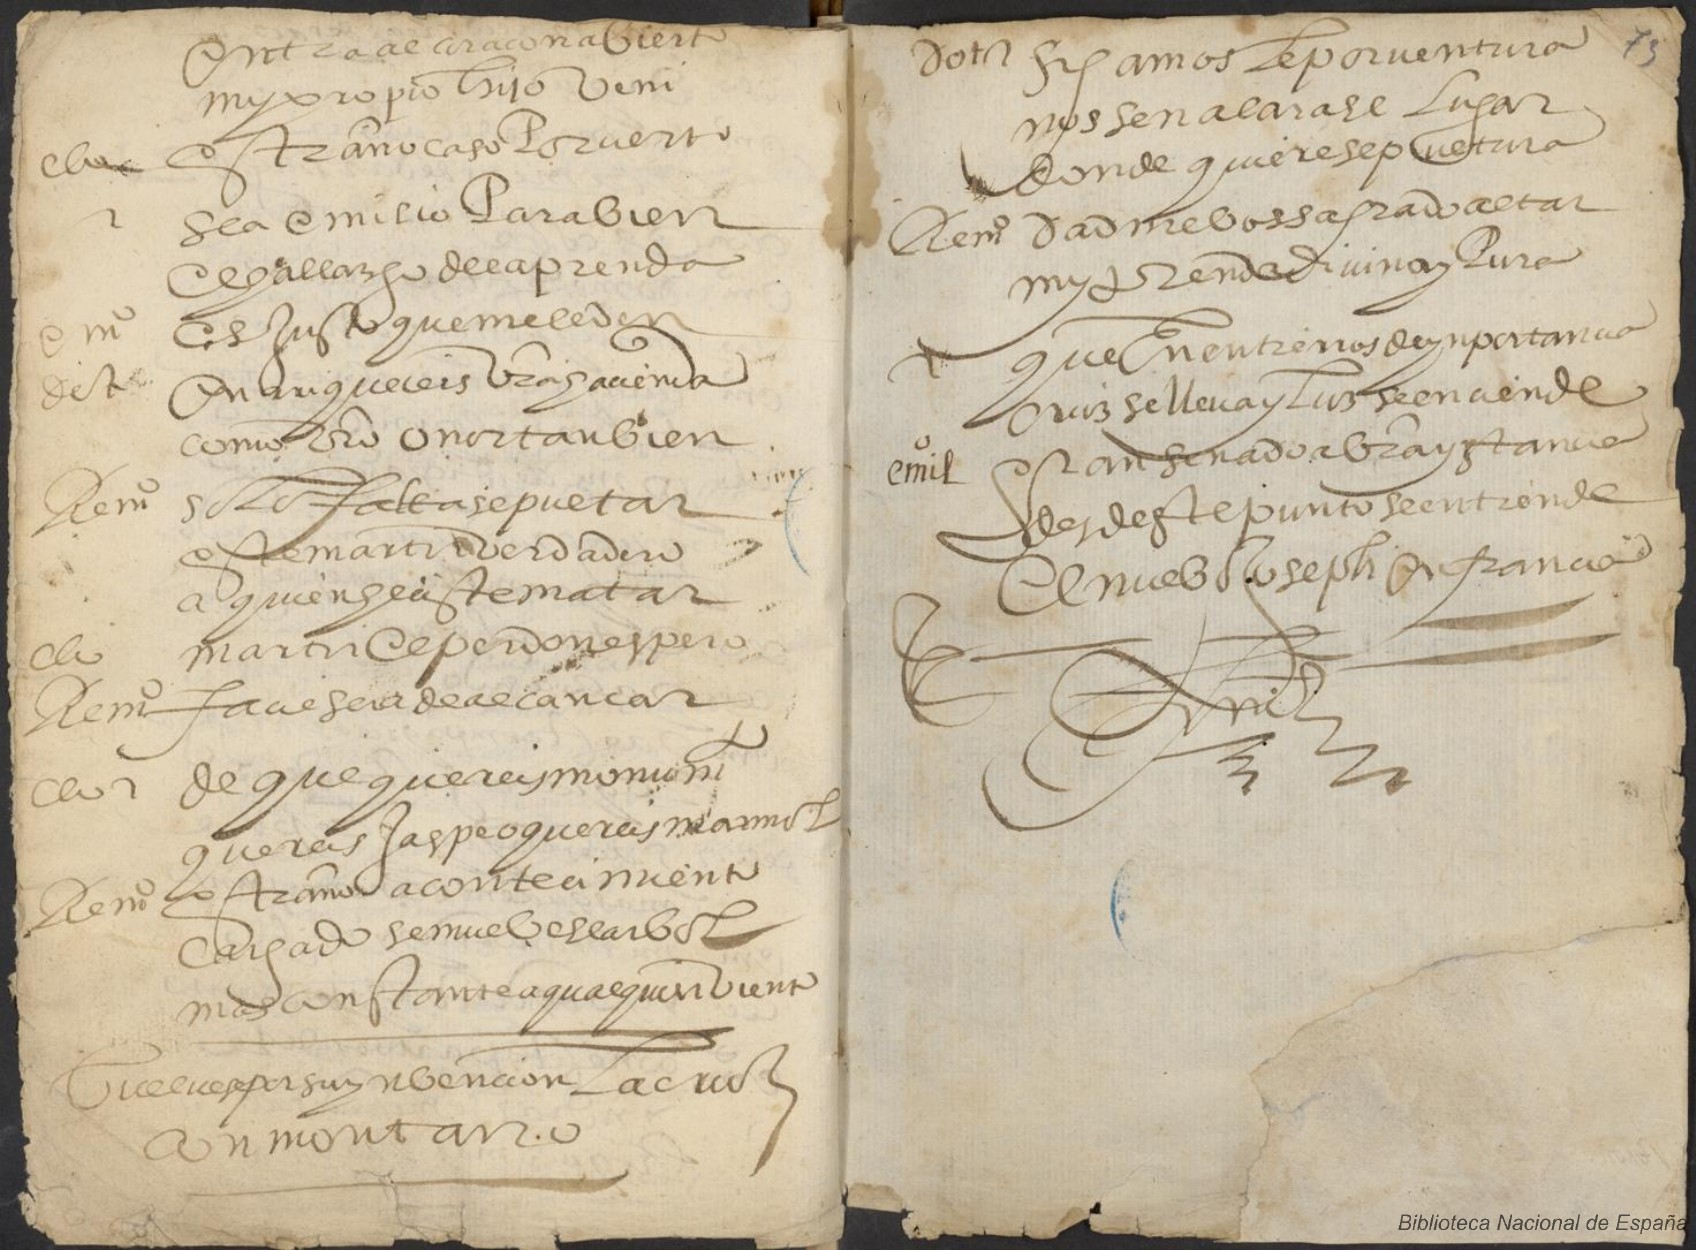 Entra al coraçon abierto
my propio hijo veni
clo estraño caso Por cierto
r sea emilio Para bien
el hallazgo de la prenda
em° es Justo que me le den
dot enrriqueceis vra hacienda
como vro onor tanbien
Rem° solo falta sepultar
este martir verdadero
a quien hiciste matar
clo martir el perdon espero
Rem° facil sera de alcançar
clor de que quereis monumt°
quereis Jaspe o quereis marmol
Rem° estraño acontecimiento
cargado se mueve el arbol
mas constante a qualquier viento
Vuelvese por su ynbencion La cruz
en montar.o
73
Dotr sigamosle por ventura
nos señalara el Lugar
donde quiere sepultura
Rem° Dadme vos sagrado altar
my prenda divina y Pura
que en entierros de ynportancia
cruz se lleva y luz se enciende
emil° gran senado a vra ystancia
desde este punto se entiende
El nuebo Joseph en francia
Biblioteca Nacional de España